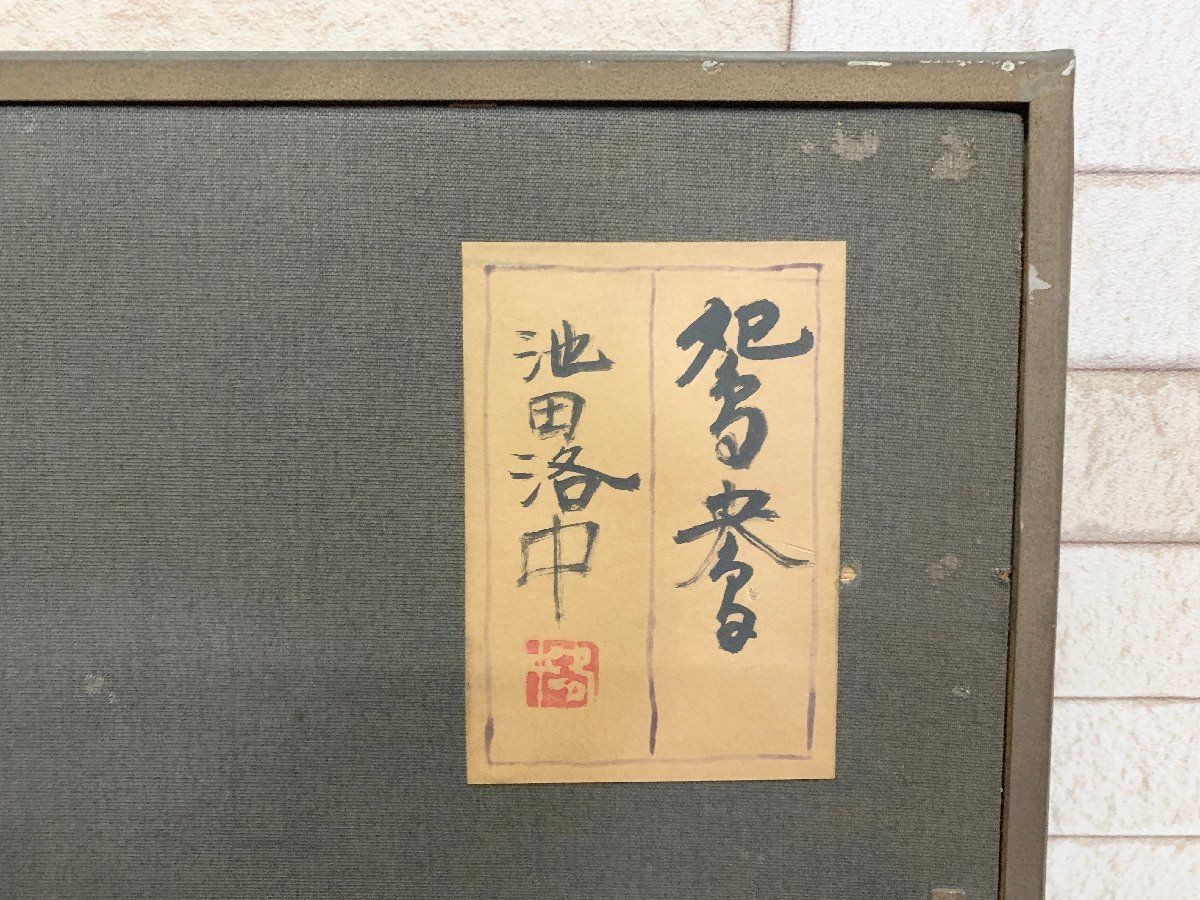 鴛鴦
池田洛中
洛